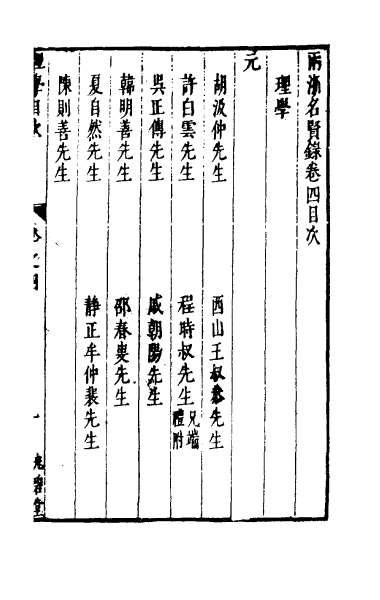 兩浙名賢錄卷四目次
理學
元
胡汲仲先生 西山王叔先生
許白雲先生 程時叔先生兄端禮附
吳正傳先生 戚朝陽先生
韓明善先生 邵春叟先生
夏自然先生 靜正牟仲裴先生
陳則善先生
理學目次 卷之四 一 光碧堂